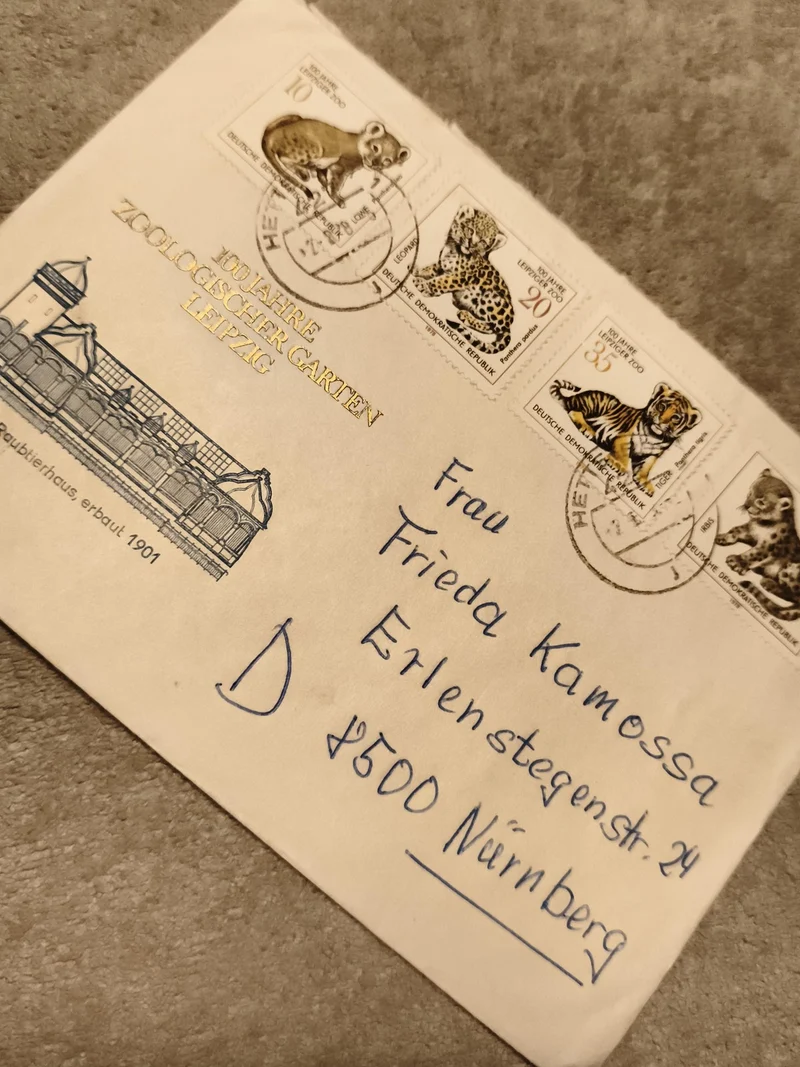 100 JAHRE
LEIPZIGER ZOO
10
DEUTSCHE DEMOKRATISCHE REPUBLIK
LÖWE
HET
LEOPARD
100 JAHRE
LEIPZIGER ZOO
20
DEUTSCHE DEMOKRATISCHE REPUBLIK
Panthera pardus
1978
100 JAHRE
LEIPZIGER ZOO
35
DEUTSCHE DEMOKRATISCHE REPUBLIK
Panthera tigris
TIGER
HET
IRBIS
DEUTSCHE DEMOKRATISCHE REPUBLIK
1978
100 JAHRE
ZOOLOGISCHER GARTEN
LEIPZIG
Raubtierhaus, erbaut 1901
Frau
Frieda Kamossa
Erlenstegenstr. 24
D 8500 Nürnberg